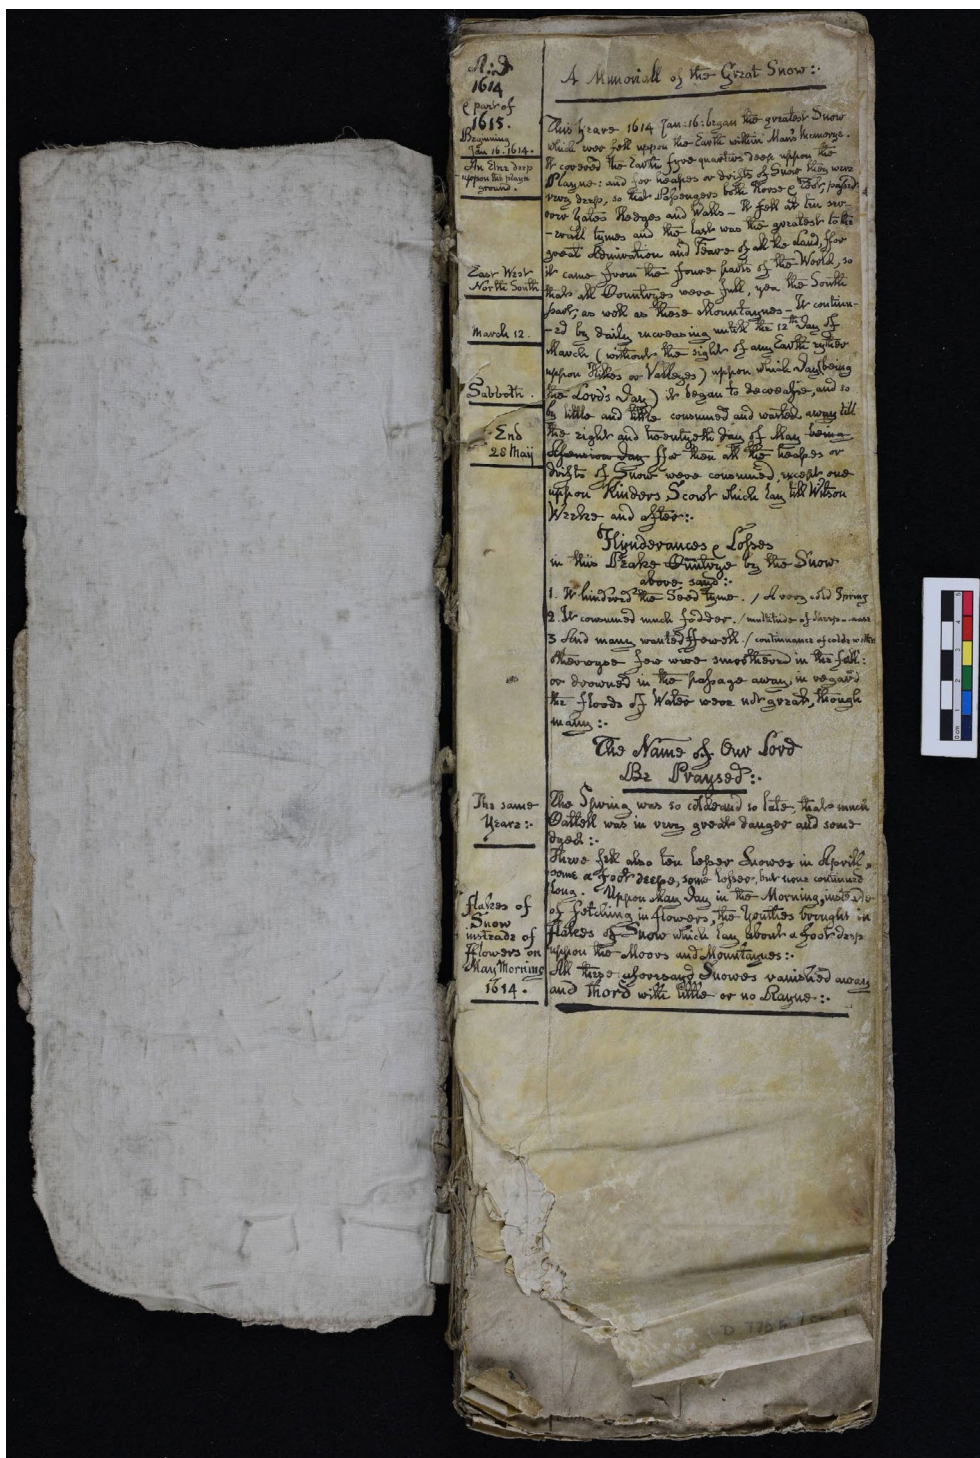 A:D
1614
& part of
1615.
Beginning
Jan 16. 1614.
An Elne deep
uppon the playn
ground.
East West
North South
March 12.
Sabboth.
End
28 May
The same
Yeare:.
flakes of
Snow
insteade of
fflowers on
May Morning
1614.
A Memoriall of the Great Snow:.
This Yeare 1614 Jan: 16: began the greatest Snow
which ever fell uppon the Earth within Mans Memorye.
It covered the Earth fyve quarters deep uppon the
Playne: and for heapes or drifts of Snow they were
very deep, so that Passengers both Horse & Foot, passed
over Yates Hedges and Walls - It fell at ten sev-
-erall tymes and the last was the greatest to the
great Admiration and Feare of all the Land, ffor
it came from the foure parts of the World, so
that all Countryes were full, yea the South
part, as well as these Mountaynes - It continu-
-ed by daily increasing untill the 12th Day of
March (without the sight of any Earth eyther
uppon Hilles or Valleyes) uppon which Day (being
the Lord's Day) it began to decrease, and so
by little and little consumed and wasted away till
the eight and twentyeth day of May being
Ascension Day ffor then all the heapes or
drifts of Snow were consumed, except one
uppon Kinders Scout which lay till Witson
Weeke and after:.
Hynderances & Losses
in this Peake Cuntrye by the Snow
above sayd:.
1. It hindred the Seed tyme. / A very cold Spring
2. It consumed much fodder. / multitude of Sheep
3 And many wanted ffewell. / continuance of colde wether
otherwyse few were smothered in the fall:
or drowned in the passage away, in regard
the floods of Water were not great, though
many:.
The Name of Our Lord
Be Praysed:.
The Spring was so colde and so late, that much
Cattell was in very great danger and some
dyed:.
There fell also ten lesser Snowes in Aprill,
some a foot deepe, some lesser, but none continued
long. Uppon May Day in the Morning, insteade
of fetching in flowers, the Youthes brought in
flakes of Snow which lay about a foot deep
uppon the Moors and Mountaynes:.
All these aforesayd Snowes vanished away
and thoed with little or no Rayne:.